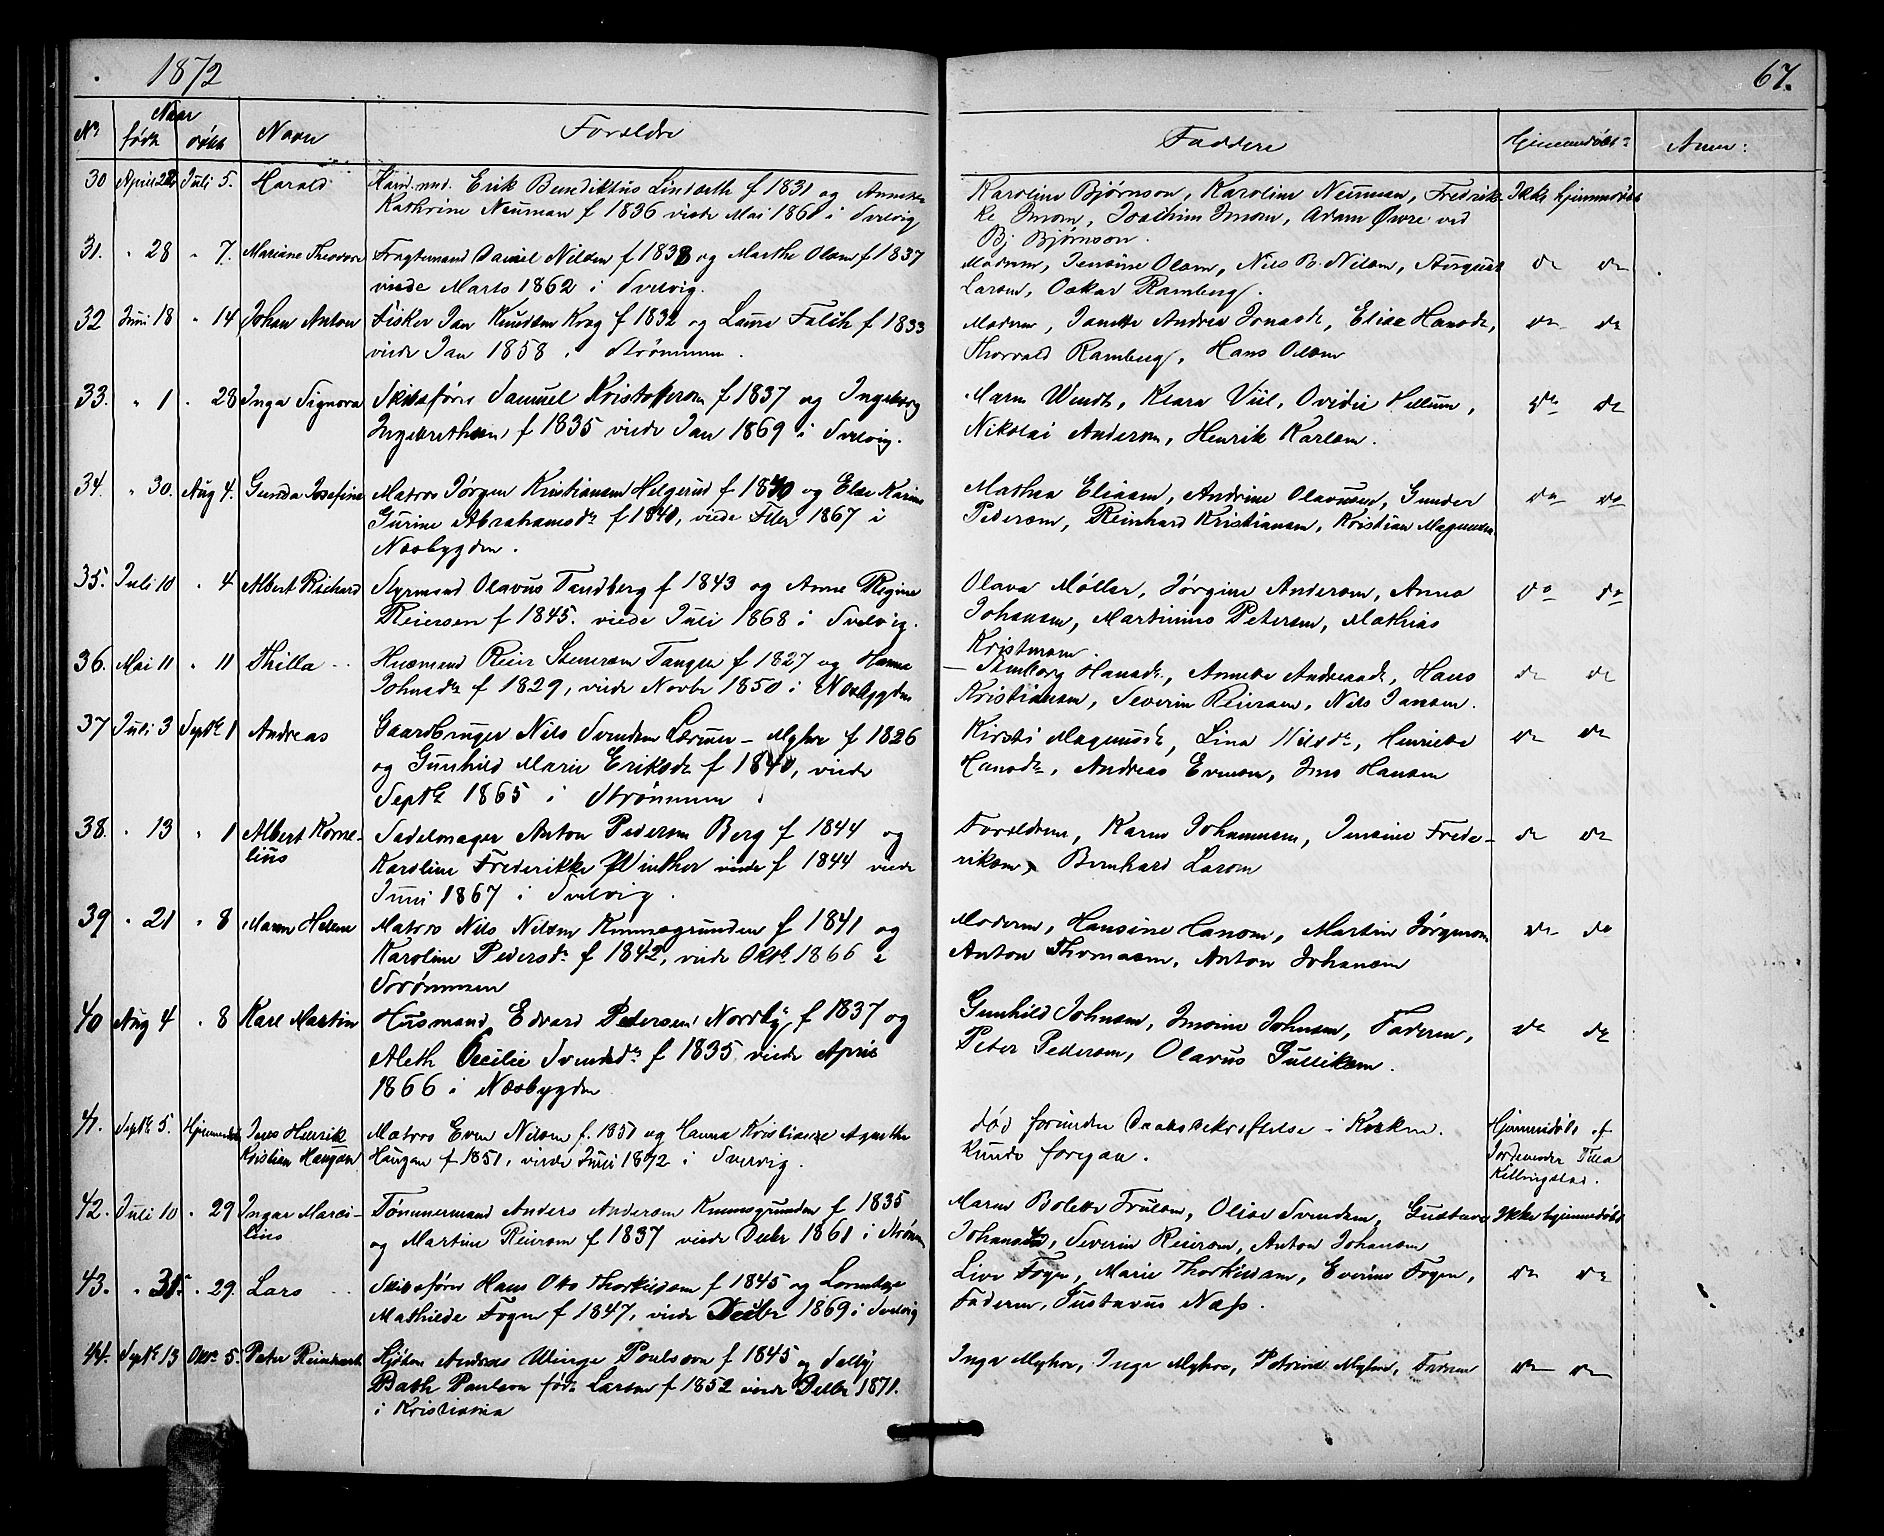 1872
67.
No
Naar
født
døbt
Navn
Forældre
Faddere
Hjemmedøbt
Anm:
30 April 28 Juli 5. Harald Hand.md. Erik Bendiktus Lindseth f 1831 og Annette
Kathrine Neuman f 1836 viede Mai 1861 i Svelvig
Karoline Bjørnson, Karoline Neuman, Fredrik- Ikke hjemmedøbt
ke Imsen, Joachim Imsen, Adam Øvre ved
Bj Bjørnson.
31. " 28 " 7. Mariane Theodore Fragtemand Daniel Nilsen f 1838 og Marthe Olsen f 1837
viede Marts 1862 i Svelvig.
Moderen, Jensine Olsen, Nils B. Nilsen, August do do
Larsen, Oskar Ramberg.
32 Juni 18 " 14 Johan Anton Fisker Jan Knudsen Krog f 1832 og Laura Falch f 1833
viede Jan 1858 i Strømmen.
Moderen, Janette Andrea Jonasdr, Elise Hansdr, do do
Thorvald Ramberg, Hans Olsen
33. " 1 " 28 Inga Signora Skibsfører Samuel Kristofersen f 1837 og Ingeborg
Ingebrethsen f 1835 viede Jan 1869 i Svelvig.
Maren Wendt, Klara Viil, Ovidie Hellum, do do
Nikolai Andersen, Henrik Karlsen.
34. " 30. Aug 4. Gunda Josefine Matros Jørgen Kristiansen Helgerud f 1840 og Else Karine
Gurine Abrahamsdr f 1840, viede Febr 1867 i
Næsbygden.
Mathea Eliasen, Andrine Olavusen, Gunder do do
Pedersen, Reinhard Kristiansen, Kristian Magnusen.
35. Juli 10 " 4. Albert Richard Styrmand Olavus Tandberg f 1843 og Anne Regine
Reiersen f 1845. viede Juli 1868 i Svelvig.
Olava Møller, Jørgine Andersen, Anna do do
Johansen, Martinius Petersen, Mathias
Kristensen.
36. Mai 11 " 11 Thilla Husmand Reier Stenersen Tangen f 1827 og Hanna
Johnsdr f 1829, viede Novbr 1850 i Næsbygden
Semborg Hansdr, Annette Andreasdr, Hans do do
Kristiansen, Severin Reiersen, Nils Jansen.
37 Juli 3 Septbr 1 Andreas Gaardbruger Nils Svendsen Lærum-Myhre f 1826
og Gunhild Marie Eriksdr f 1840, viede
Septbr 1865 i Strømmen.
Kirsti Magnusdr, Lina Nilsdr, Henriette do do
Hansdr, Andreas Evensen, Jens Hansen
38. " 13 " 1 Albert Korne-
lius
Sadelmager Anton Pedersen Berg f 1844 og
Karoline Frederikke Winther viede f 1844 viede
Juni 1867 i Svelvig.
Forældrene, Karen Johannesen, Jensine Frede- do do
riksen, Bernhard Larsen
39 " 21 " 8 Maren Helene Matros Nils Nilsen Kinnsgrunden f 1841 og
Karoline Pedersdr f 1842, viede Oktbr 1866 i
Strømmen
Moderen, Hansine Hansen, Martin Jørgensen do do
Anton Thomasen, Anton Johansen
40 Aug 4 " 8 Karl Martin Husmand Edvard Pedersen Nordby f 1837 og
Aleth Cecilie Svendsdr f 1835 viede April
1866 i Næsbygden
Gunhild Johnsen, Imsine Johnsen, Faderen, do do
Peter Pedersen, Olavus Gulliksen.
41. Septbr 5. Hjemmedøbt Jens Henrik
Kristian Haugan
Matros Even Nilsen f. 1851 og Hanna Kristianze Agnethe
Haugan f 1851, viede Juni 1872 i Svelvig.
død forinden Daabsbekræftelse i Kirken
kunde foregaa.
Hjemmedøbt af
Jordemoder Tilla
Killingstad.
42. Juli 10 " 29 Ingar Marci-
lius
Tømmermand Anders Andersen Kinnsgrunden f 1835
og Martine Reiersen f 1837 viede Decbr 1861 i Strømm
Maren Bolette Trulsen, Olise Svendsen, Gustava Ikke hjemmedøbt
Johansen, Severin Reiersen, Anton Johansen
43. " 31 " 29. Lars Skibsfører Hans Otto Thorkildsen f 1845 og Lorentze
Mathilde Fogen f 1847, viede Decbr 1869 i Svelvig
Live Fogn, Marie Thorkildsen, Everine Fogen, do do
Faderen, Gustavus Næss.
44. Septbr 13 Oktbr 5. Peter Reinhardt Hjøden Andreas Winge Poulsson f 1845 og Selly
Bath Paulson født Larsen f 1852 viede Decbr 1871.
i Kristiania
Inga Myhre, Inga Myhre, Petrine Myhre, Faderen do do